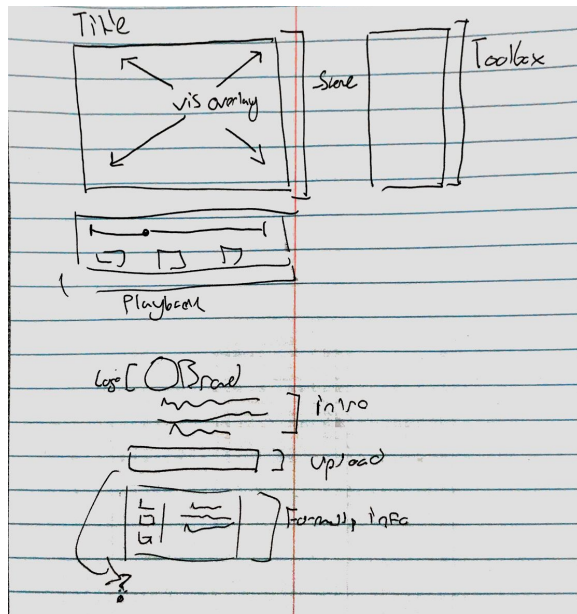 Title
vis overlay
Toolbox
Playback
Logo
Brand
intro
upload
info
?